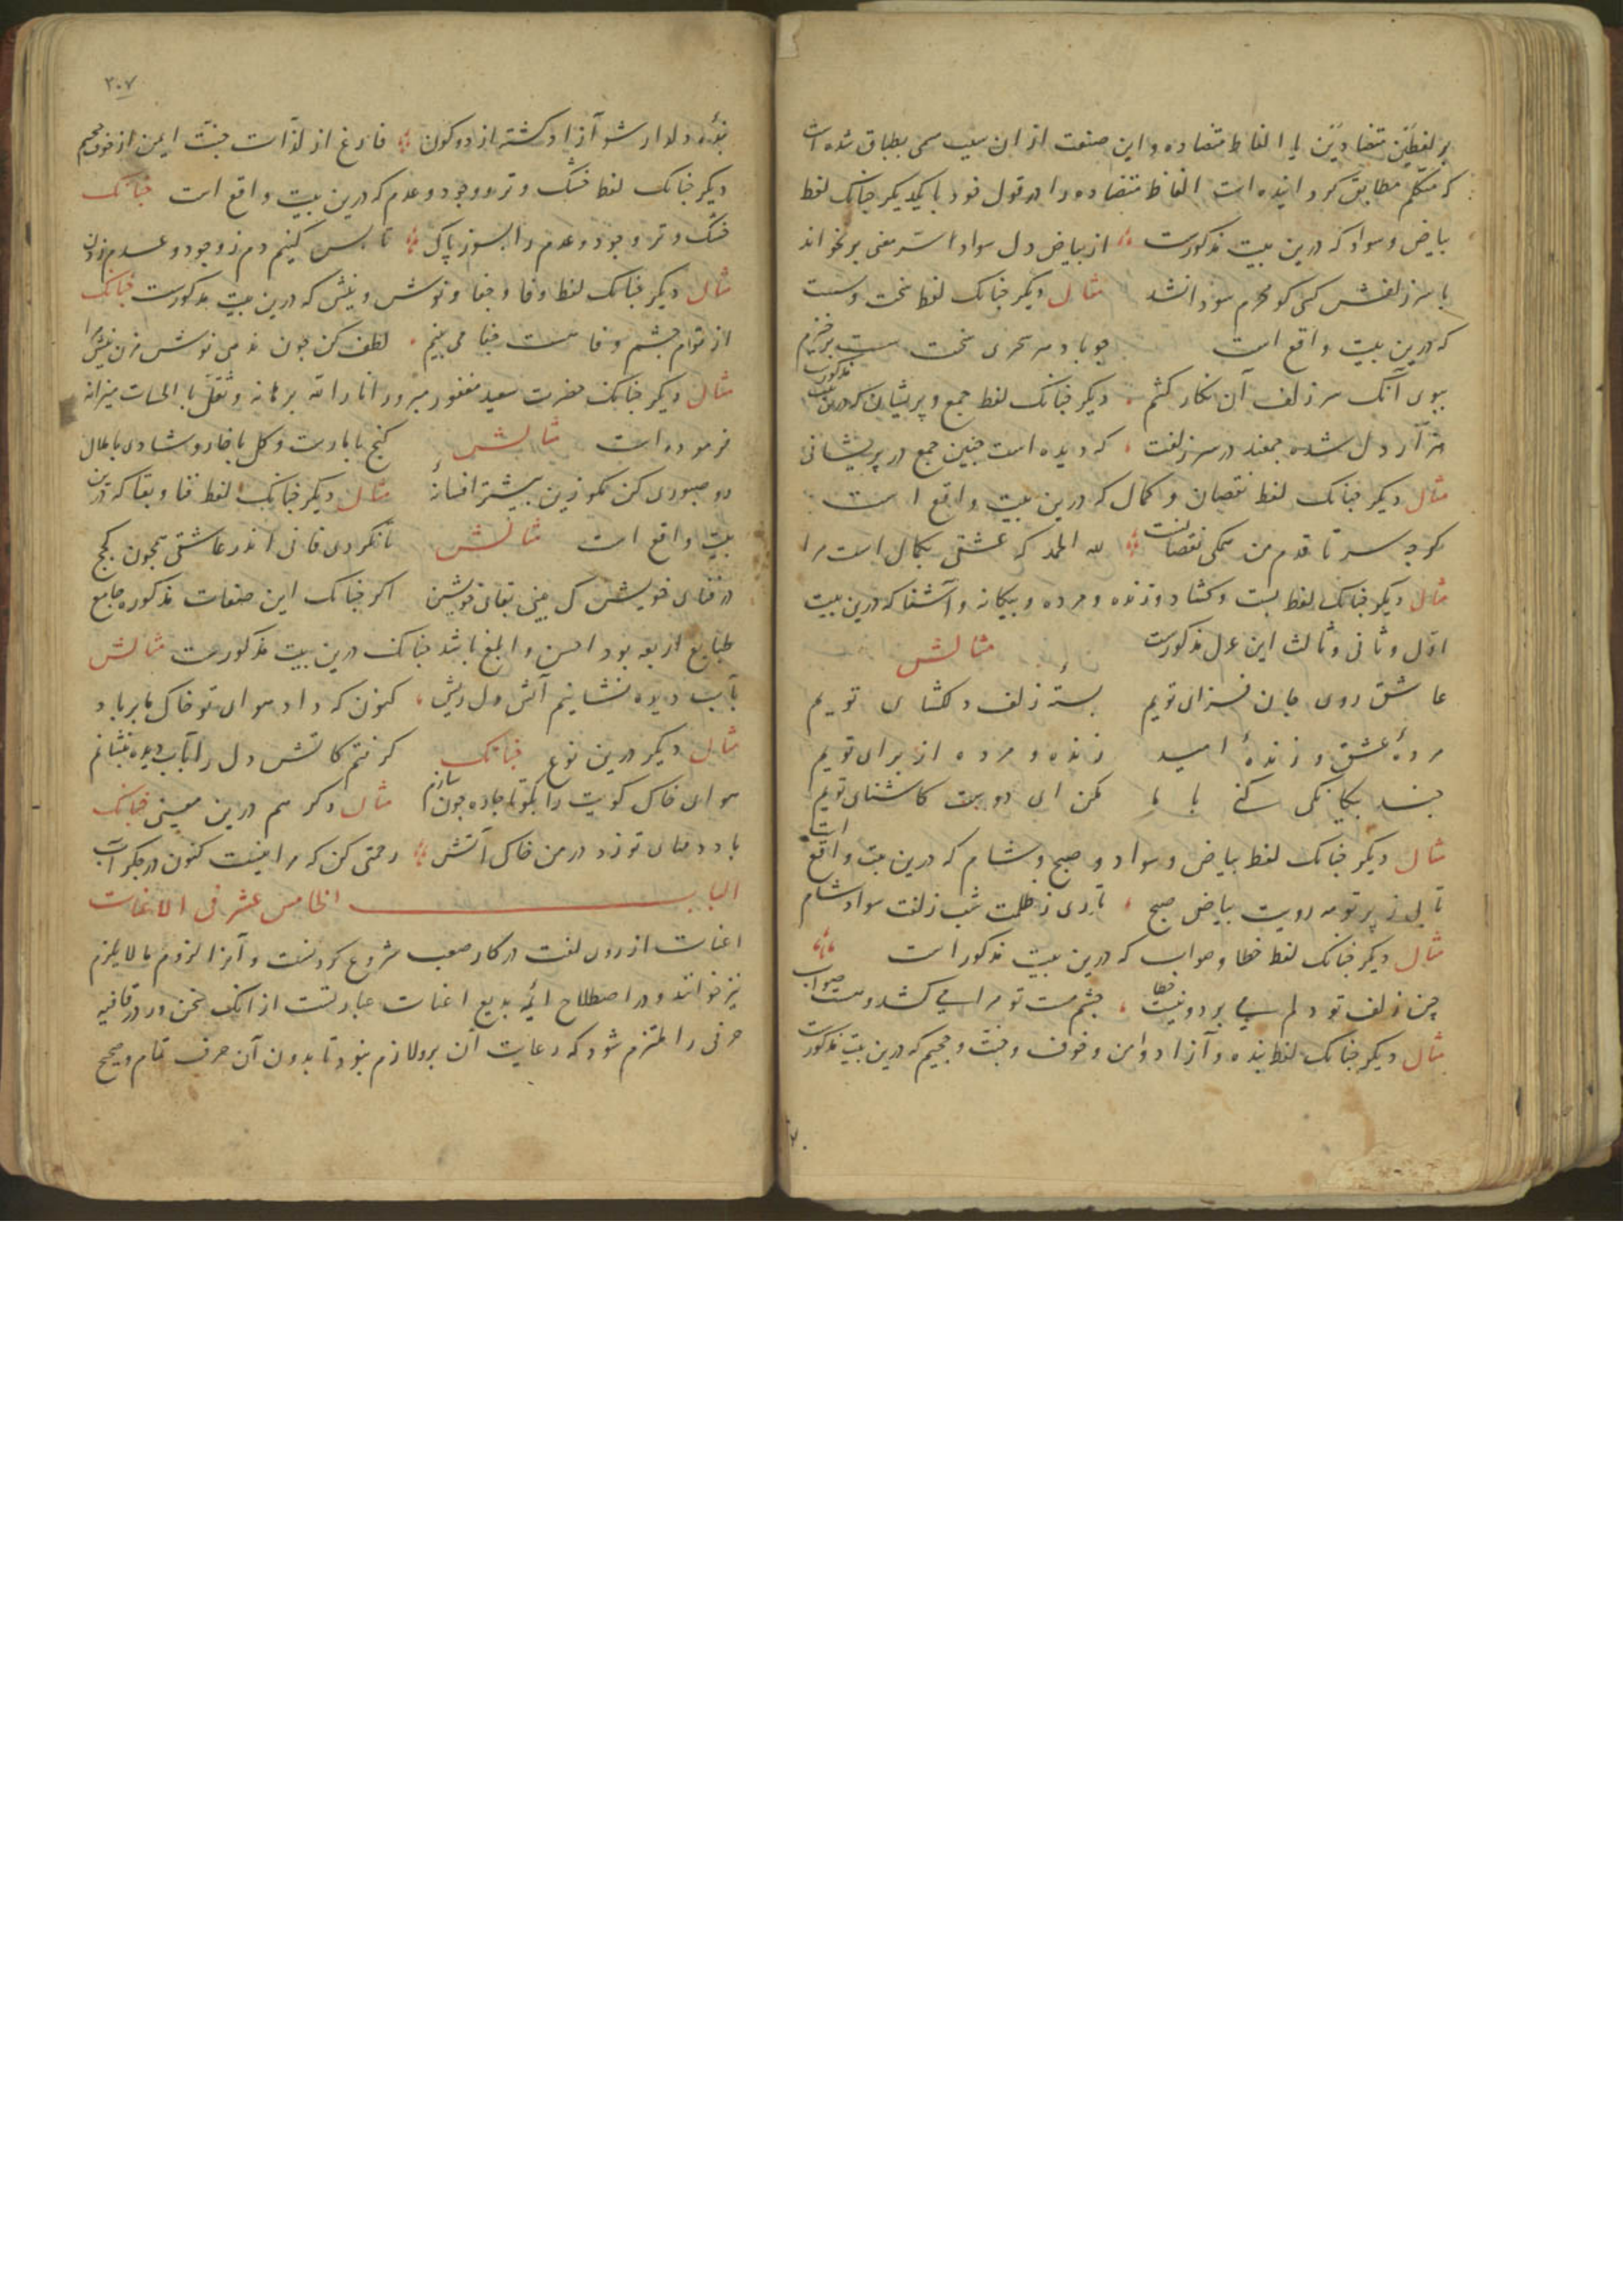 بر لفظین متضادین یا الفاظ متضاده و این صنعت از ان سبب مسمی بطباق شده است
که متکلم مطابق کردانیده است الفاظ متضاده را در قول خود با یکدیکر چنانک لفظ
بیاض و سواد که درین بیت مذکورست از بیاض دل سواد است سر معنی بر نخواند
با سر زلفش کسی کو محرم سودا نشد مثال دیکر چنانک لفظ سخت و سست
که درین بیت واقع است چو باد هر سحری سخت سست برخیزم
ببوی آنک سر زلف آن نکار کشم دیکر چنانک لفظ جمع و پریشان که درین بیت مذکورست
هزار دل شده جمعند در سر زلفت که دیده است چنین جمع در پریشانی
مثال دیکر چنانک لفظ نقصان و کمال که درین بیت واقع است
کرچه سر تا قدم من همکی نقصانست لله الحمد که عشقی بکمال است مرا
مثال دیکر چنانک لفظ بست و کشاد و زنده و مرده و بیکانه و آشنا که درین بیت
اول و ثانی و ثالث این غزل مذکورست مثالش
عاشق روی جان فزای توییم بستهٔ زلف دلکشای توییم
مردهٔ عشق و زندهٔ امید زنده و مرده از برای توییم
چند بیکانکی کنی با ما مکن ای دوست کاشنای توییم
مثال دیکر چنانک لفظ بیاض و سواد و صبح و شام که درین بیت واقع است
تابی ز پرتو مه رویت بیاض صبح تاری ز ظلمت شب زلفت سواد شام
مثال دیکر چنانک لفظ خطا و صواب که درین بیت مذکور است
چین زلف تو دلم می برد و نیست خطا چشم مست تو مرا می کشد و هست صواب
مثال دیکر چنانک لفظ بنده و آزاد و امن و خوف و جنت و جحیم که درین بیت مذکورست
۳۰۷
بندهٔ دلدار شو آزاد کشته از دو کون فارغ از لذات جنت ایمن از خوف جحیم
دیکر چنانک لفظ خشک و تر و وجود و عدم که درین بیت واقع است چنانک
خشک و تر وجود و عدم را بسوز پاک تا بس کنیم دم ز وجود و عدم زدن
مثال دیکر چنانک لفظ وفا و جفا و نوش و نیش که درین بیت مذکورست چنانک
از توام چشم وفا هست جفا می بینم لطف کن چون ندهی نوش مزن نیش مرا
مثال دیکر چنانک حضرت سعید مغفور مبرور انار الله برهانه و ثقل بالحسنات میزانه
فرموده است مثالش کنج با مارست و کل با خار و شادی با ملال
رو صبوری کن مکو زین بیشتر افسانهٔ مثال دیکر چنانک لفظ فنا و بقا که درین
بیت واقع است مثالش تا نکردی فانی اندر عاشقی همچون کجج
در فنای خویشتن کی بینی بقای خویشتن اکر چنانک این صنعات مذکوره جامع
طبایع اربعه بود احسن و ابلغ باشد چنانک درین بیت مذکورست مثالش
بآب دیده نشانیم آتش دل ریش کنون که داد هوای تو خاک ما بر باد
مثال دیکر درین نوع چنانک کرفتم کاتش دل را بآب دیده بنشانم
هوای خاک کویت را بکو تا چاره چون سازم مثال دکر هم درین معنی چنانک
باد هوای تو زد در من خاک آتش رحمتی کن که مرا نیست کنون در جکر آب
الباب الخامس عشر فی الاعنات
اعنات از روی لغت در کار صعب شروع کردنست و آنرا لزوم ما لا یلزم
نیز خوانند و در اصطلاح ائمهٔ بدیع اعنات عبارتست از آنک سخن ور در قافیه
حرفی را ملتزم شود که رعایت آن برو لازم نبود تا بدون آن حرف تمام و صحیح